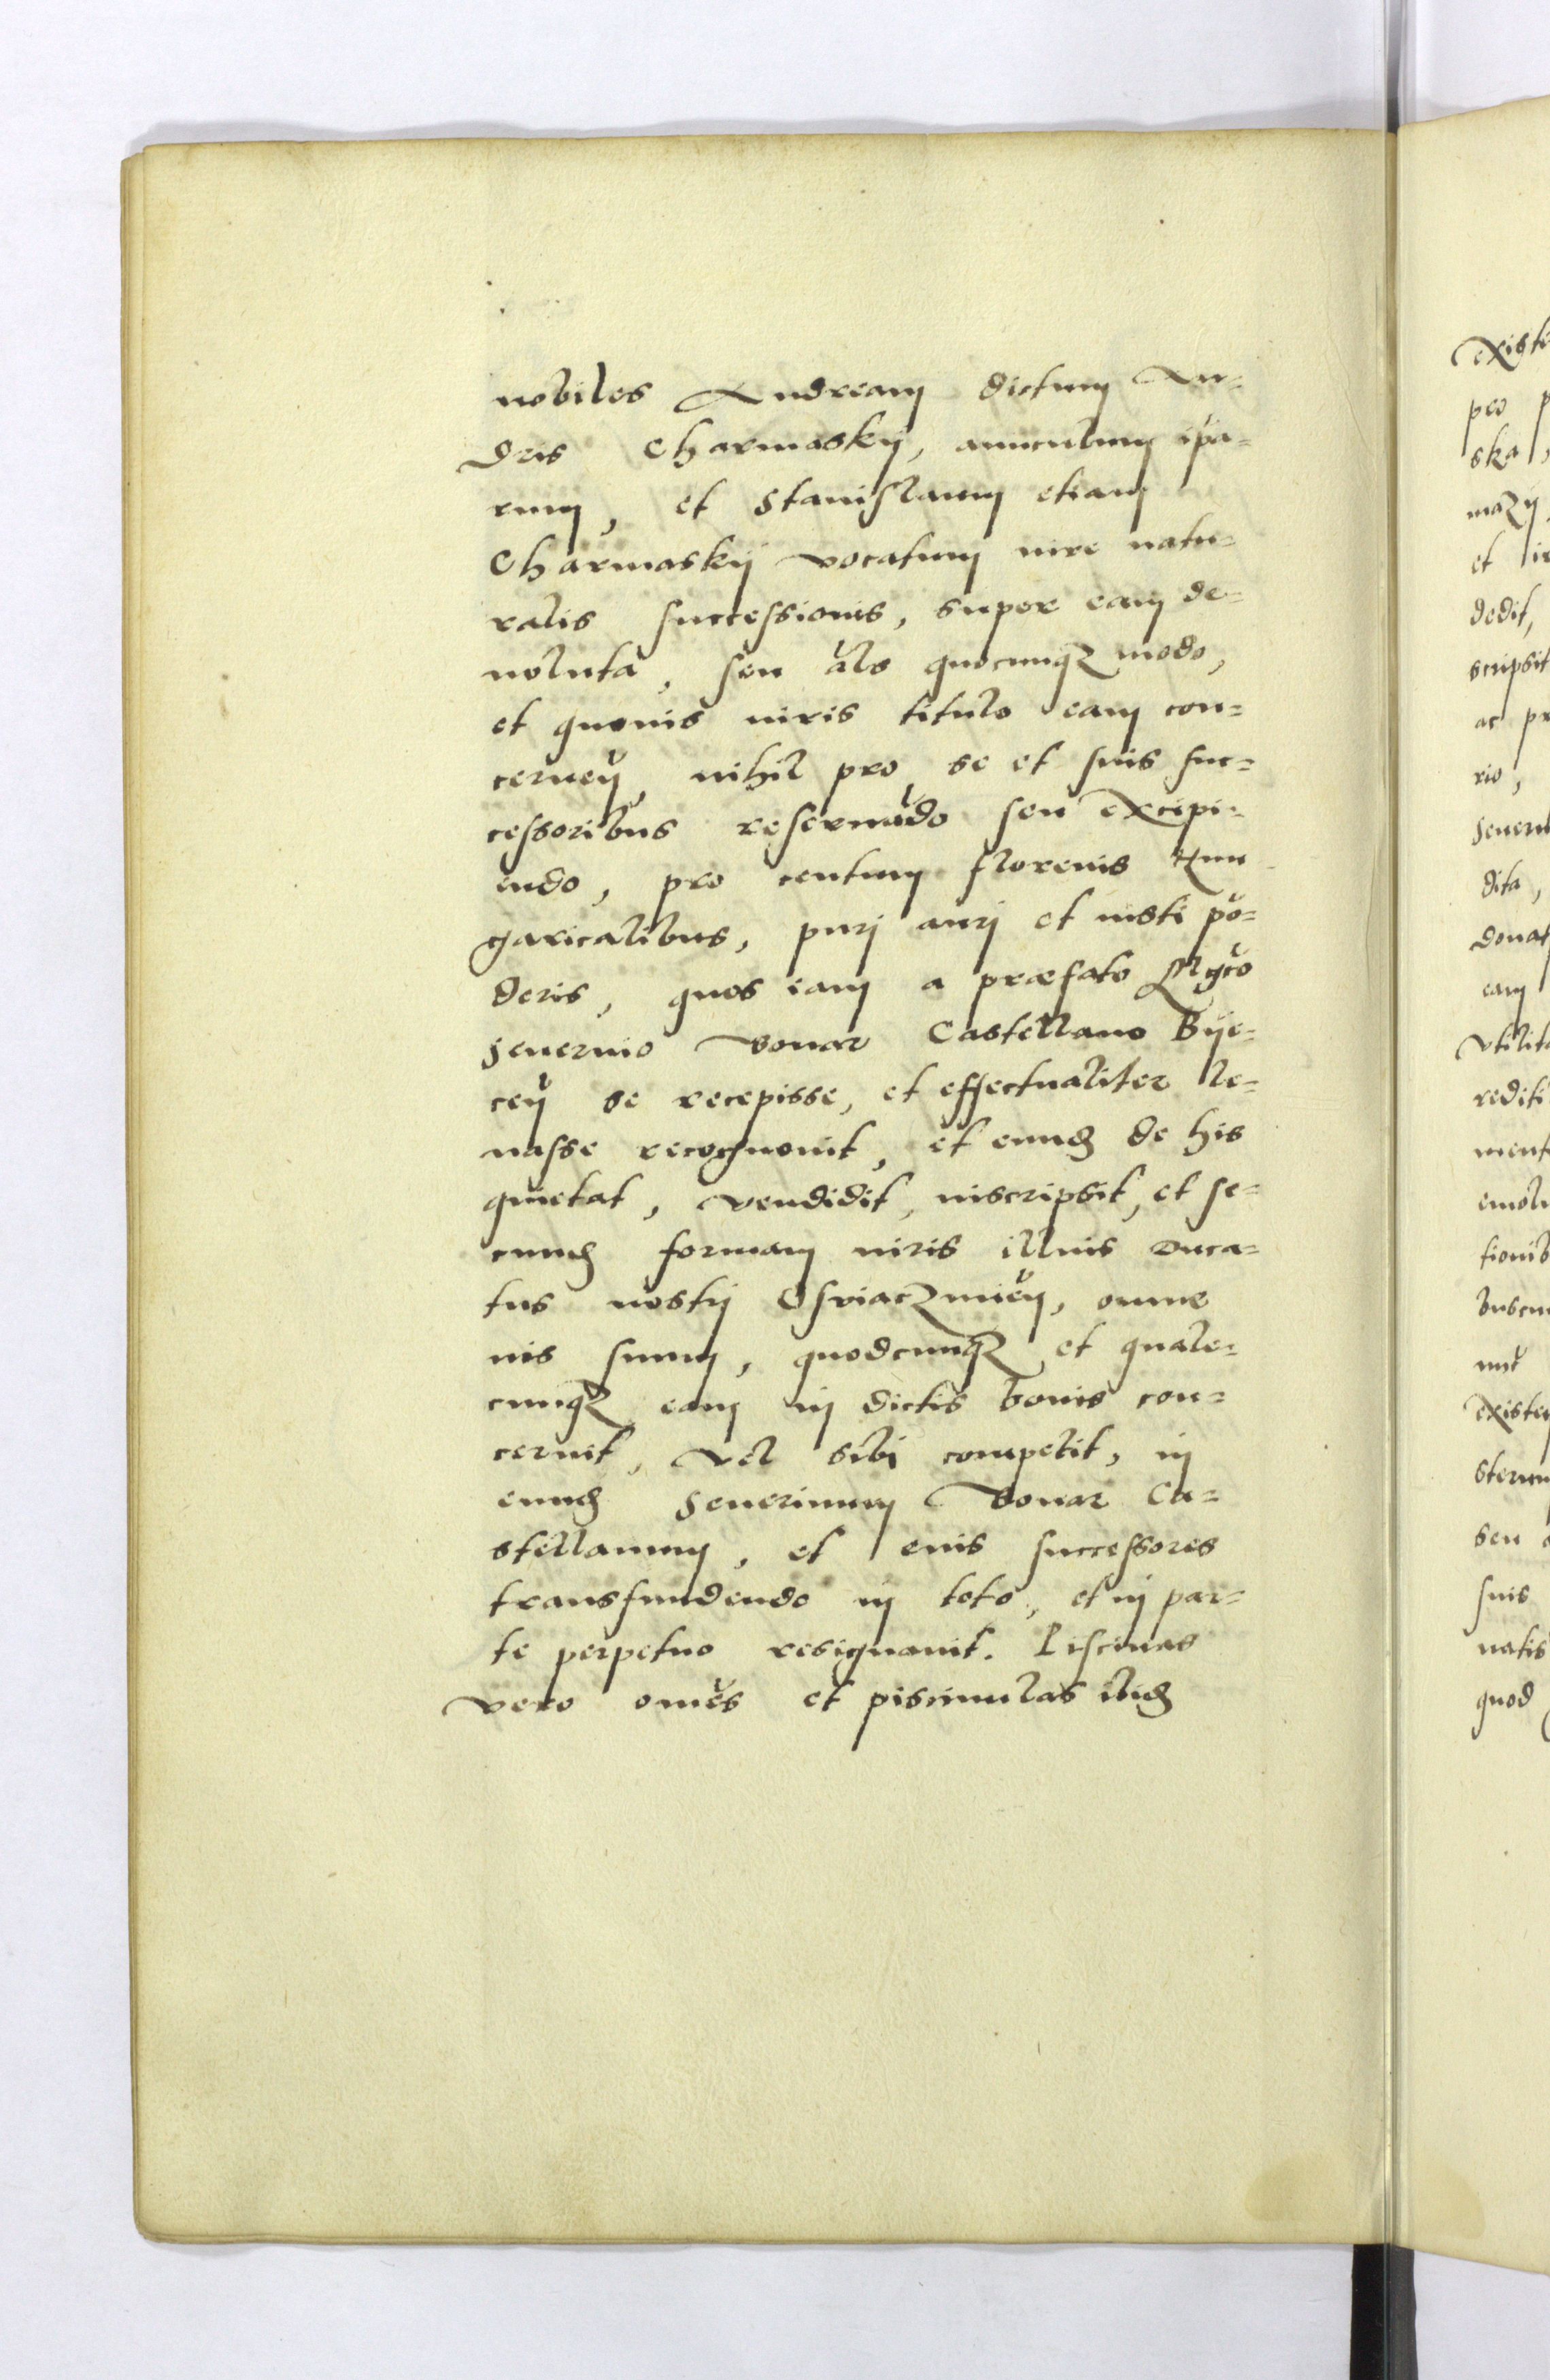 nobiles Andream dictum An=
dris Charmaskij, auunculum ip̃a=
rum, et Stanislaum etiam
Charmaskij vocatum iure natu=
ralis successionis, super eam de=
uoluta, seu al̃o quocunqꝫ modo,
et quouis iuris titulo eam con=
cerneñ, nihil pro se et suis suc=
cessoribus reseruãdo seu excipi=
endo, pro centum florenis Hun
garicalibus, puri auri et iusti põ=
deris, quos iam a præfato Mgco
Seuerino Bonar Castellano Bije=
ceñ se recepisse, et effectualiter le=
uasse recognouit, et eund de his
quietat, vendidit, inscripsit, et se=
cund formam iuris illius Duca=
tus nostri Osviaczimieñ, omne
ius suum, quodcunqꝫ et quale=
cunqꝫ eam in dictis bonis con=
cernit, vel sibi competit, in
eund Seuerinum Bonar Ca=
stellanum, et eius successores
transfundendo in toto, et in par=
te perpetuo resignauit. Piscinas
vero om̃es et piscinulas ibid
existe
pro p
ska,
mazij
et iu
dedit,
scripsit
ac pr
rio,
Seueri
dita,
donat
eam
vtilita
rediti
ment
emolu
tionib
buscu
existen
seu
suis
natis
quod